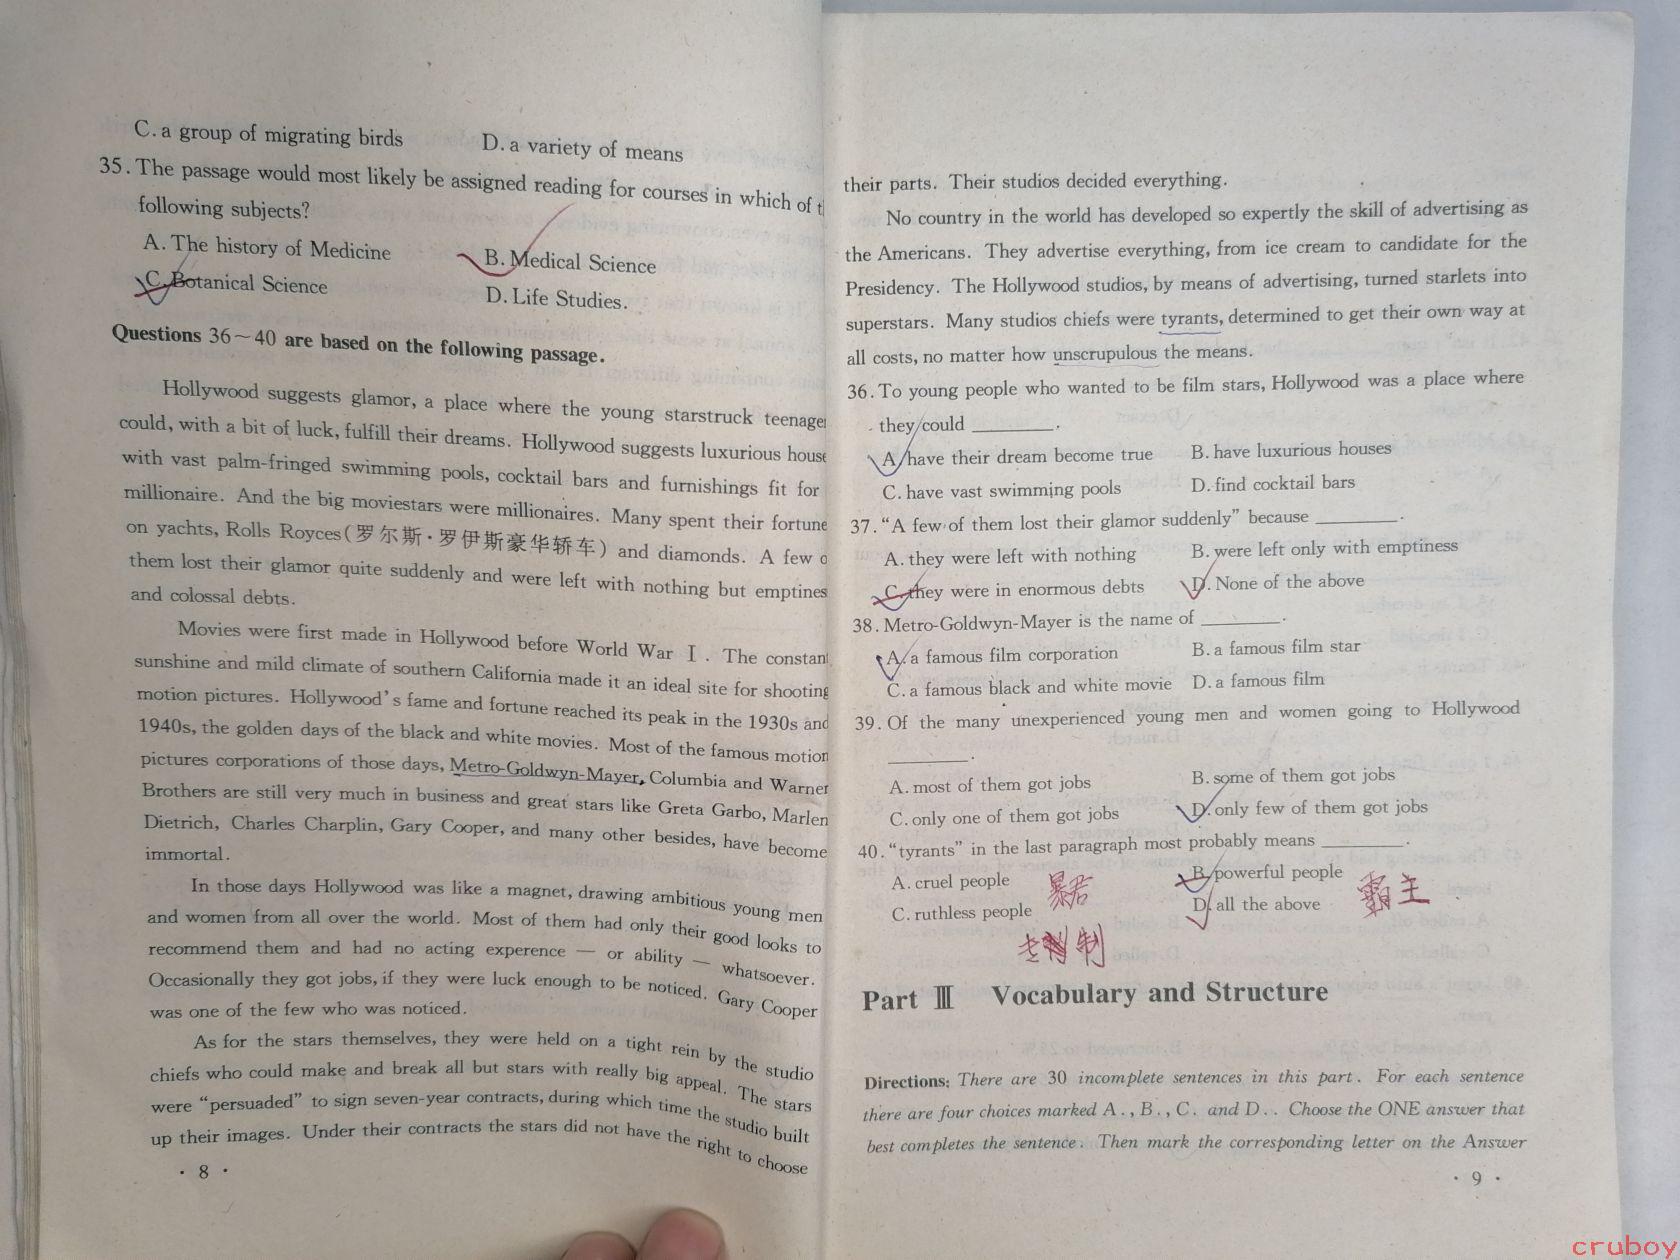 C. a group of migrating birds D. a variety of means
35. The passage would most likely be assigned reading for courses in which of t
following subjects?
A. The history of Medicine B. Medical Science
C. Botanical Science D. Life Studies.
Questions 36～40 are based on the following passage.
Hollywood suggests glamor, a place where the young starstruck teenager
could, with a bit of luck, fulfill their dreams. Hollywood suggests luxurious house
with vast palm-fringed swimming pools, cocktail bars and furnishings fit for
millionaire. And the big moviestars were millionaires. Many spent their fortune
on yachts, Rolls Royces(罗尔斯·罗伊斯豪华轿车) and diamonds. A few o
them lost their glamor quite suddenly and were left with nothing but emptines
and colossal debts.
Movies were first made in Hollywood before World War Ⅰ. The constant
sunshine and mild climate of southern California made it an ideal site for shooting
motion pictures. Hollywood's fame and fortune reached its peak in the 1930s and
1940s, the golden days of the black and white movies. Most of the famous motion
pictures corporations of those days, Metro-Goldwyn-Mayer, Columbia and Warner
Brothers are still very much in business and great stars like Greta Garbo, Marlen
Dietrich, Charles Charplin, Gary Cooper, and many other besides, have become
immortal.
In those days Hollywood was like a magnet, drawing ambitious young men
and women from all over the world. Most of them had only their good looks to
recommend them and had no acting experence — or ability — whatsoever.
Occasionally they got jobs, if they were luck enough to be noticed. Gary Cooper
was one of the few who was noticed.
As for the stars themselves, they were held on a tight rein by the studio
chiefs who could make and break all but stars with really big appeal. The stars
were "persuaded" to sign seven-year contracts, during which time the studio built
up their images. Under their contracts the stars did not have the right to choose
· 8 ·
their parts. Their studios decided everything.
No country in the world has developed so expertly the skill of advertising as
the Americans. They advertise everything, from ice cream to candidate for the
Presidency. The Hollywood studios, by means of advertising, turned starlets into
superstars. Many studios chiefs were tyrants, determined to get their own way at
all costs, no matter how unscrupulous the means.
36. To young people who wanted to be film stars, Hollywood was a place where
they could ________.
A. have their dream become true B. have luxurious houses
C. have vast swimming pools D. find cocktail bars
37. "A few of them lost their glamor suddenly" because ________.
A. they were left with nothing B. were left only with emptiness
C. they were in enormous debts D. None of the above
38. Metro-Goldwyn-Mayer is the name of ________.
A. a famous film corporation B. a famous film star
C. a famous black and white movie D. a famous film
39. Of the many unexperienced young men and women going to Hollywood
________.
A. most of them got jobs B. some of them got jobs
C. only one of them got jobs D. only few of them got jobs
40. "tyrants" in the last paragraph most probably means ________.
A. cruel people 暴君 B. powerful people 霸主
C. ruthless people D. all the above
制
Part Ⅲ Vocabulary and Structure
Directions: There are 30 incomplete sentences in this part. For each sentence
there are four choices marked A., B., C. and D.. Choose the ONE answer that
best completes the sentence. Then mark the corresponding letter on the Answer
· 9 ·
cruboy